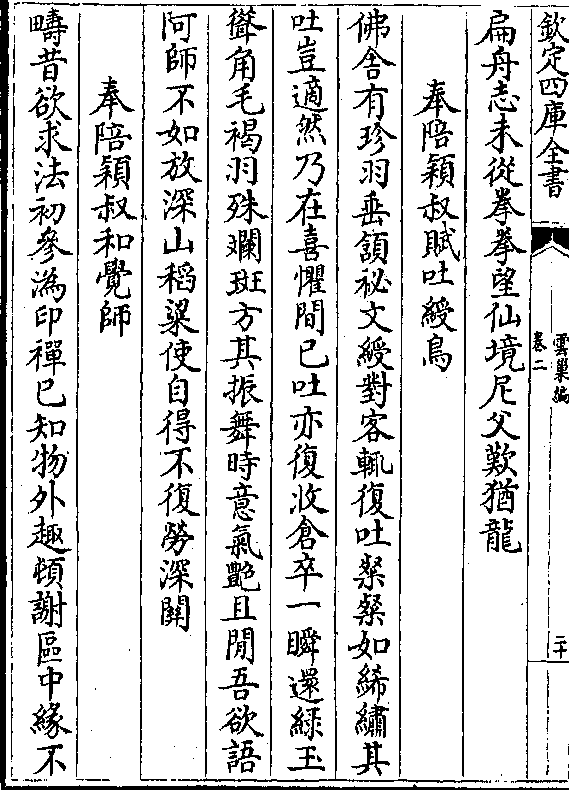 欽定四庫全書
雲巢編
卷二
二十
扁舟志未從拳拳望仙境尼父歎猶龍
奉陪穎叔賦吐綬鳥
佛舍有珍羽垂頷秘文綬對客輒復吐粲粲如絺繡其
吐豈適然乃在喜懼間已吐亦復收倉卒一瞬還綠玉
聳角毛褐羽殊斕斑方其振舞時意氣艷且閒吾欲語
阿師不如放深山稻粱使自得不復勞深關
奉陪穎叔和覺師
疇昔欲求法初參溈印禪已知物外趣頓謝區中緣不